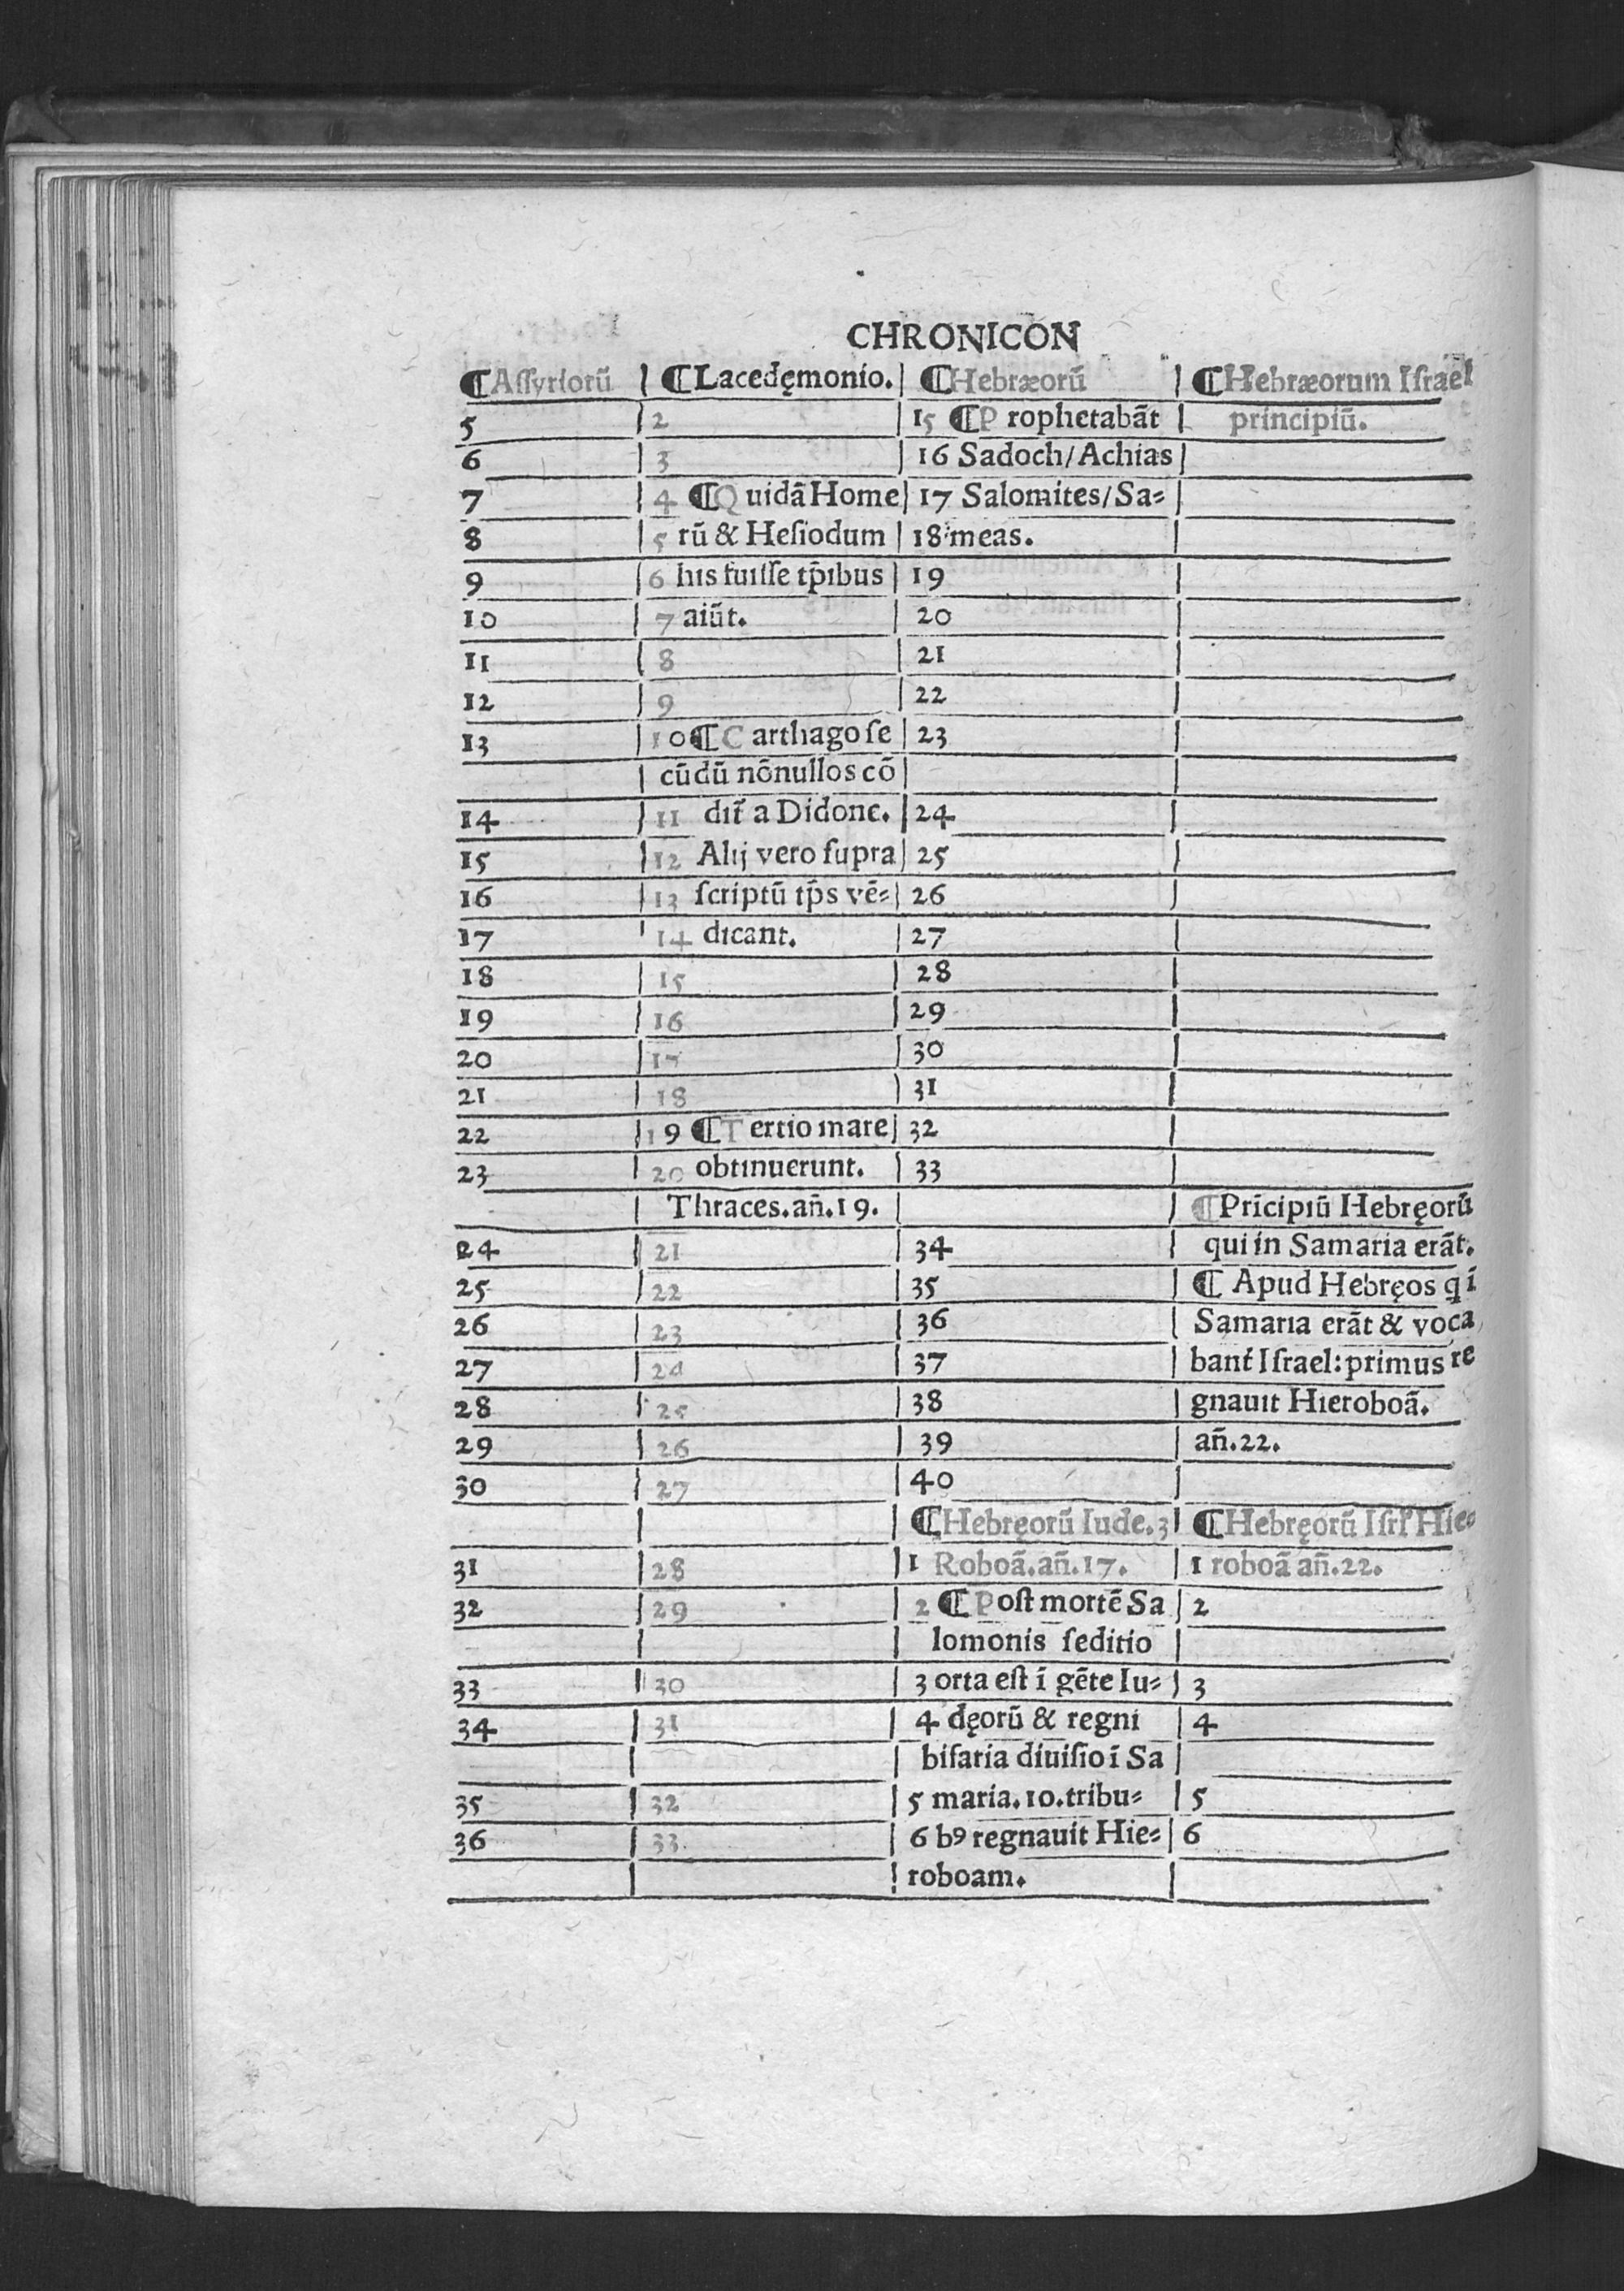 CHRONICON
¶Aſſyriorũ | ¶Lacedęmonio. | ¶Hebræorũ | ¶Hebræorum Iſrael
5 | 2 | 15 ¶Prophetabãt | principiũ.
6 | 3 | 16 Sadoch/Achias |
7 | 4 ¶Quidã Home | 17 Salomites/Sa⸗ |
8 | 5 rũ & Heſiodum | 18 meas. |
9 | 6 his fuiſſe tp̃ibus | 19 |
10 | 7 aiũt. | 20 |
11 | 8 | 21 |
12 | 9 | 22 |
13 | 10 ¶Carthago ſe | 23 |
| cũdũ nõnullos cõ | |
14 | 11 dit̃ a Didone. | 24 |
15 | 12 Alij vero ſupra | 25 |
16 | 13 ſcriptũ tp̃s vẽ⸗ | 26 |
17 | 14 dicant. | 27 |
18 | 15 | 28 |
19 | 16 | 29 |
20 | 17 | 30 |
21 | 18 | 31 |
22 | 19 ¶Tertio mare | 32 |
23 | 20 obtinuerunt. | 33 |
| Thraces.añ.19. | | ¶Prĩcipiũ Hebręorũ
24 | 21 | 34 | qui in Samaria erãt.
25 | 22 | 35 | ¶ Apud Hebręos q ĩ
26 | 23 | 36 | Samaria erãt & voca
27 | 24 | 37 | bant̃ Iſrael: primus re
28 | 25 | 38 | gnauit Hieroboã.
29 | 26 | 39 | añ.22.
30 | 27 | 40 |
| | ¶Hebręorũ Iude.3 | ¶Hebręorũ Iſrl' Hieo
31 | 28 | 1 Roboã.añ.17. | 1 roboã añ.22.
32 | 29 | 2 ¶Poſt mortẽ Sa | 2
| | lomonis ſeditio |
33 | 30 | 3 orta eſt ĩ gẽte Iu⸗ | 3
34 | 31 | 4 dęorũ & regni | 4
| | bifaria diuiſio ĩ Sa |
35 | 32 | 5 maria.10.tribu⸗ | 5
36 | 33 | 6 bꝰ regnauit Hie⸗ | 6
| | roboam. |